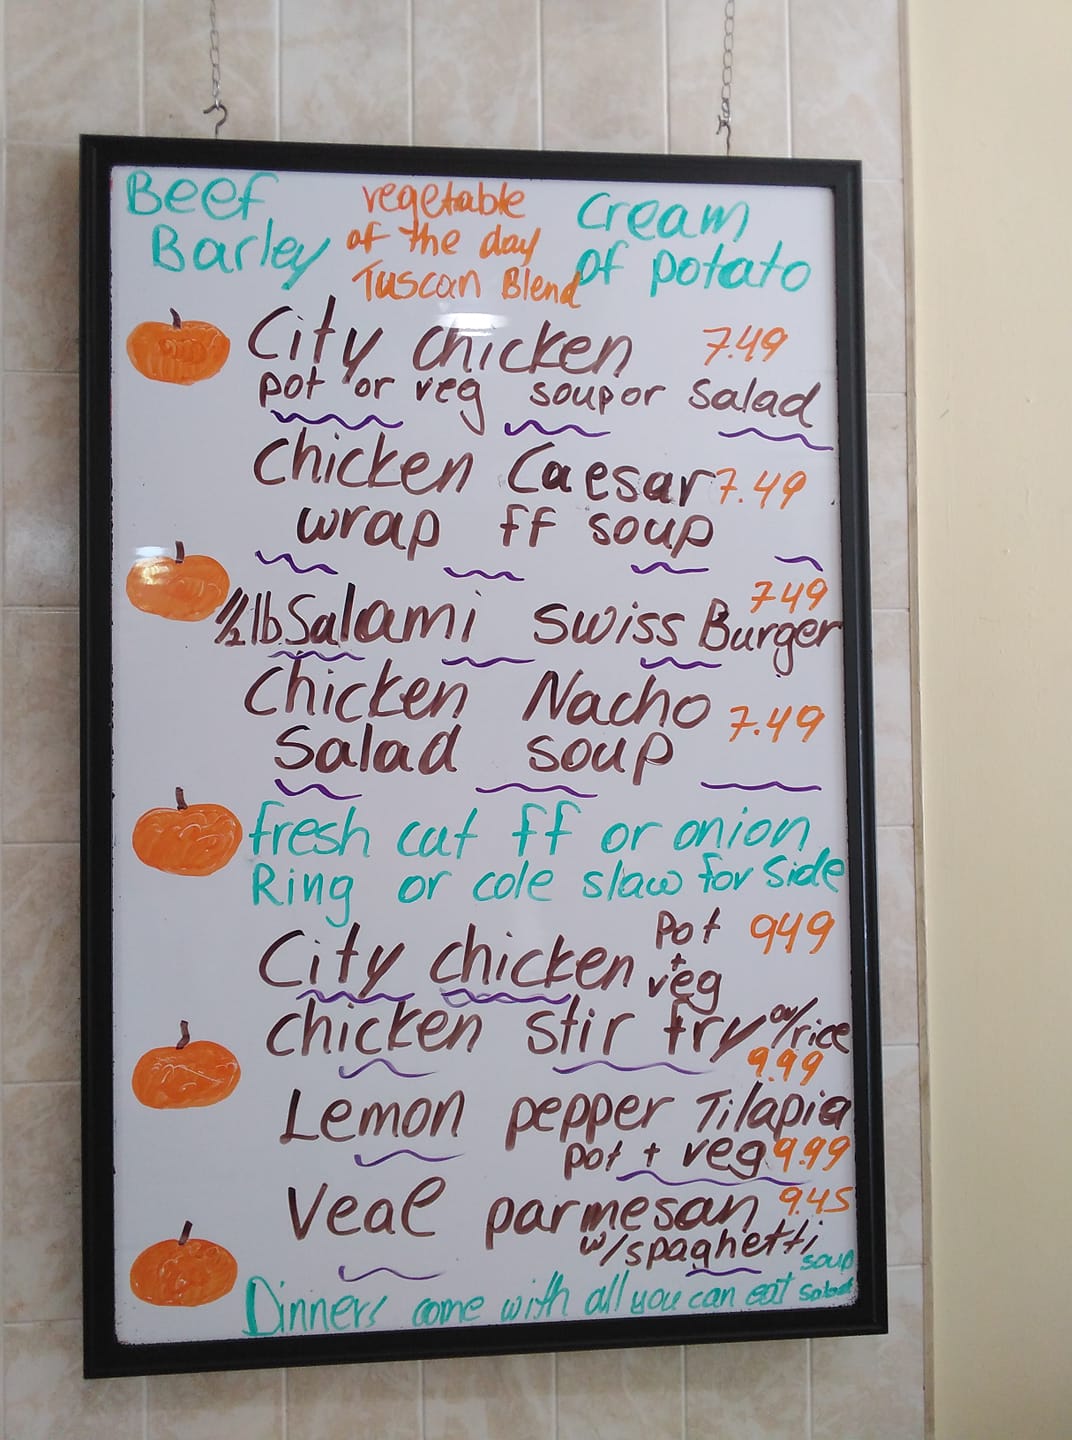 Beef
Barley
vegetable
of the day
Tuscan Blend
Cream
of potato
City chicken 7.49
pot or veg soup or salad
Chicken Caesar 7.49
wrap ff soup
1/2 lb. Salami Swiss Burger 749
Chicken Nacho
Salad soup 7.49
fresh cut ff or onion
Ring or cole slaw for side
City chicken pot + veg 949
chicken stir fry w/rice
9.99
Lemon pepper Tilapia
pot + veg 9.99
Veal parmesan 9.45
w/spaghetti
Dinners come with all you can eat soup
salad